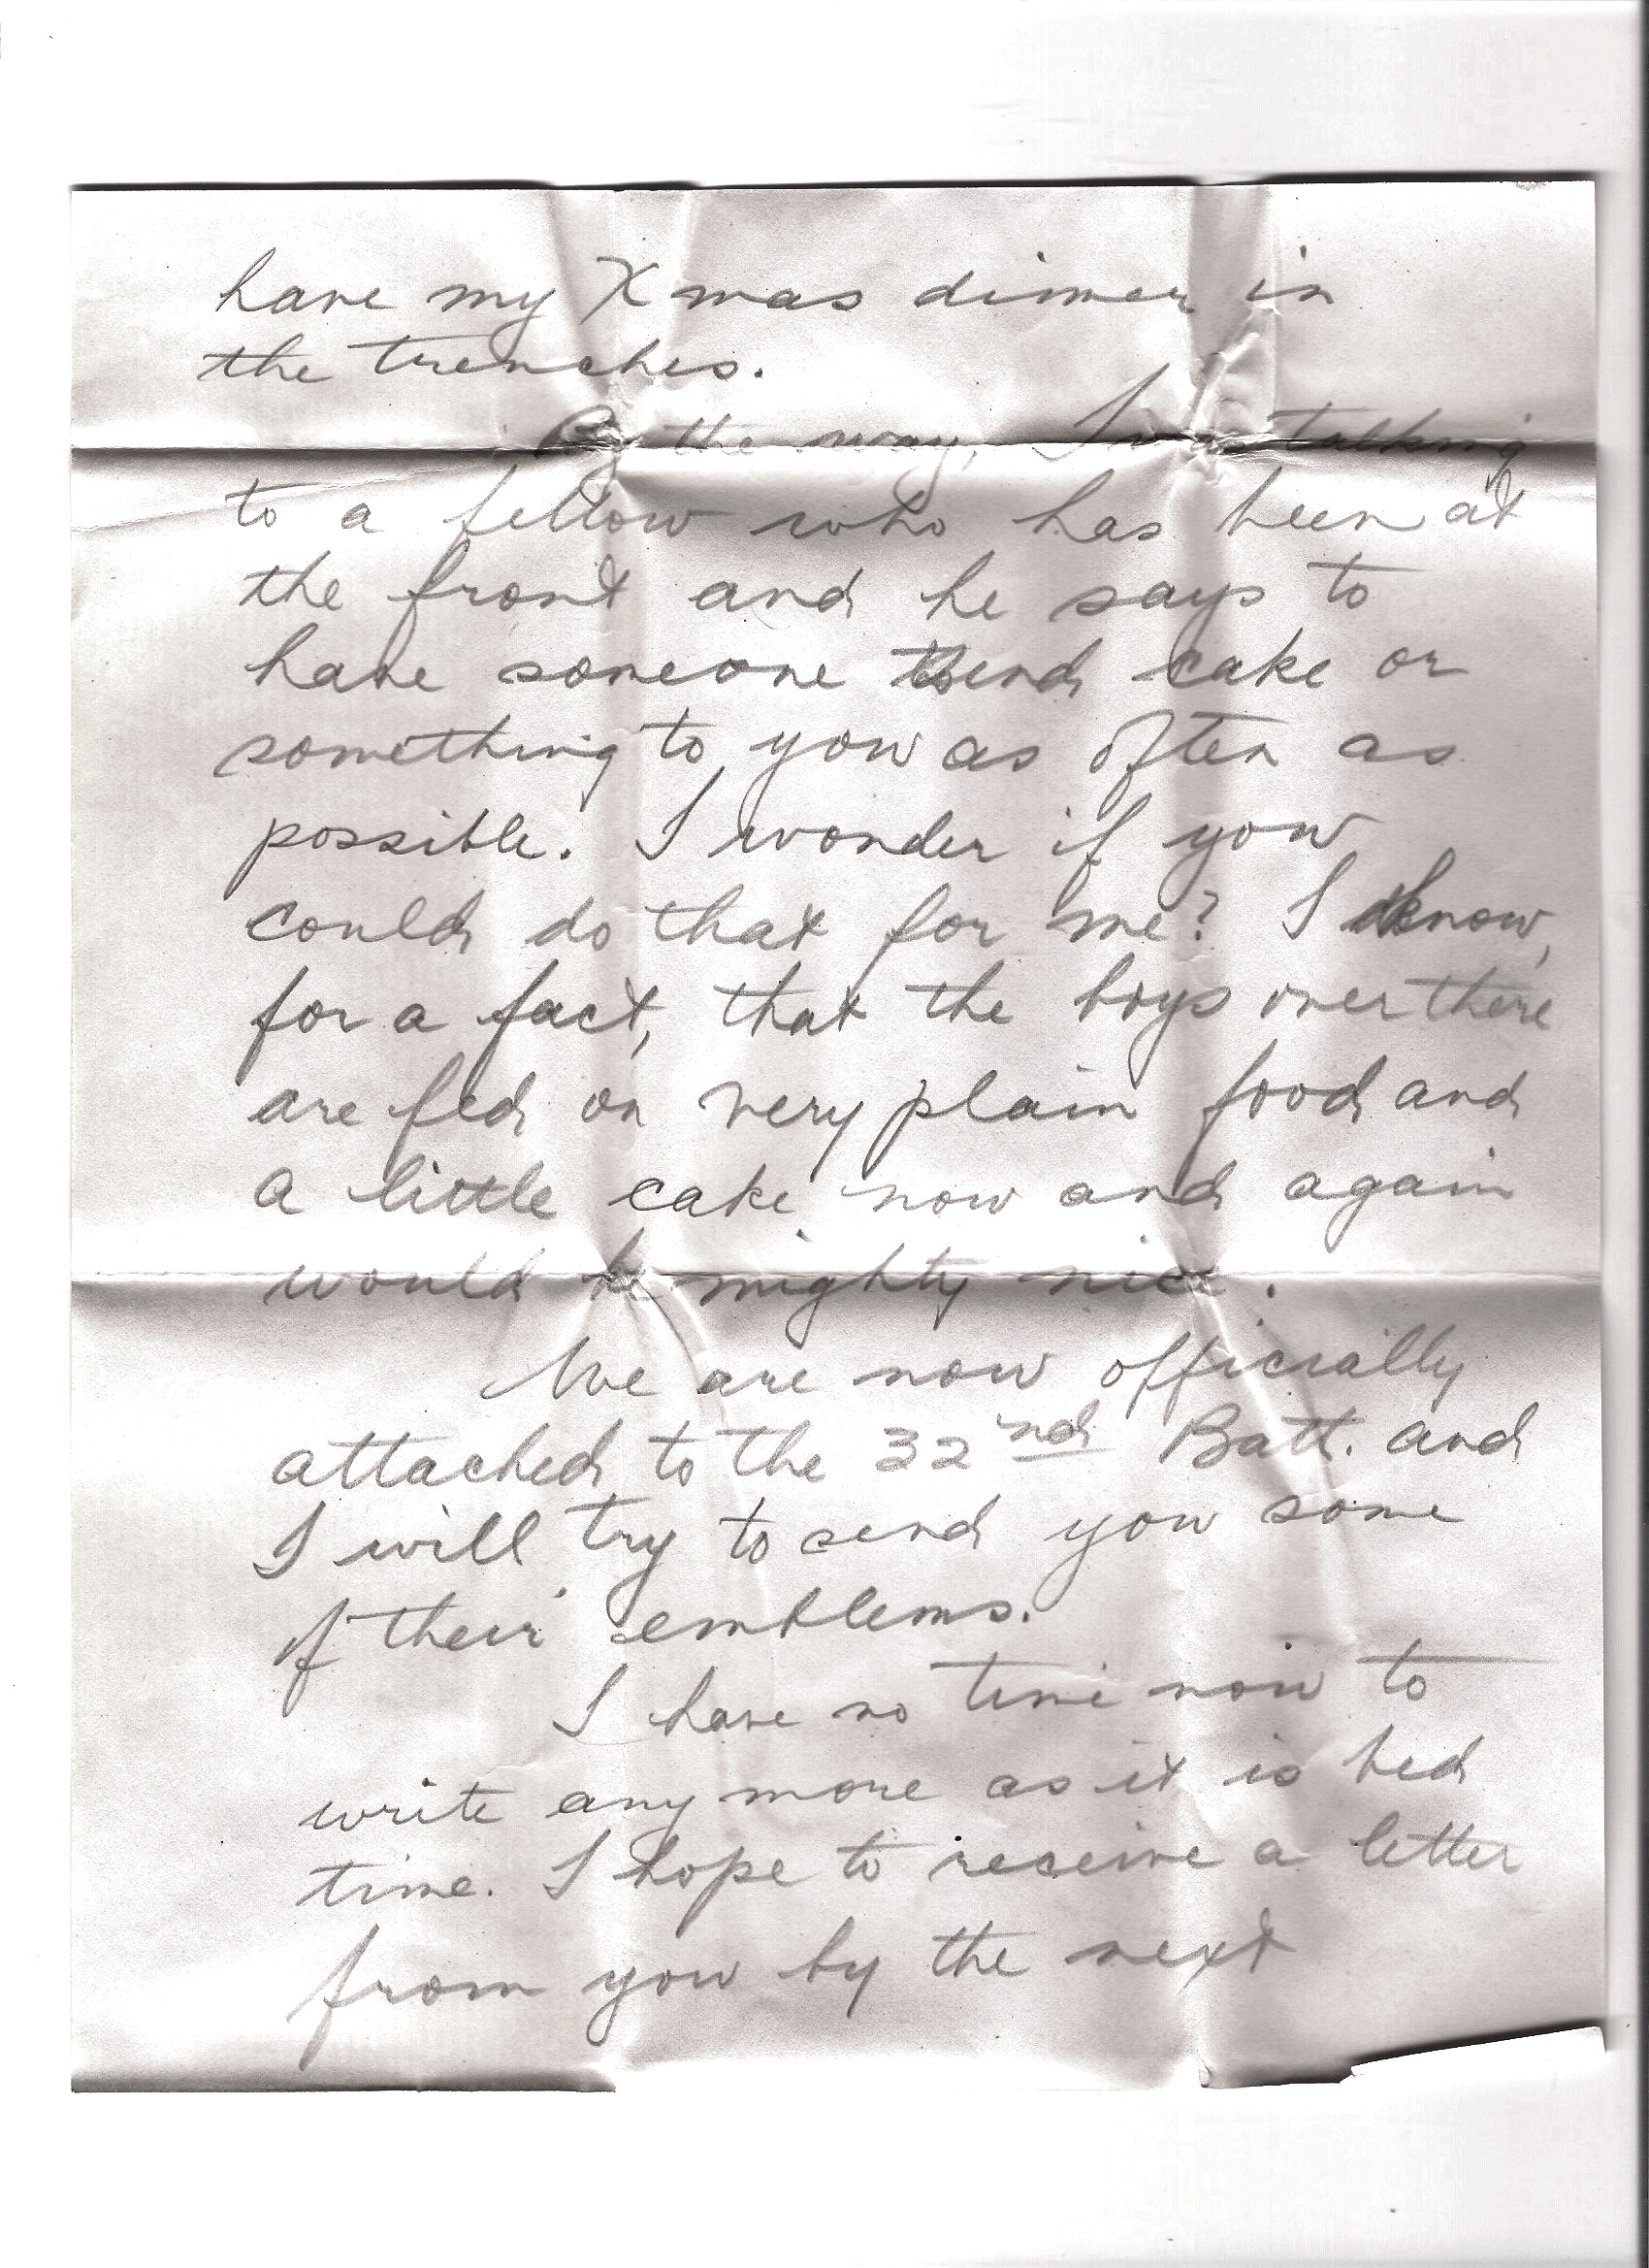 have my Xmas dinner in
the trenches.
By the way, I was talking
to a fellow who has been at
the front and he says to
have someone send cake or
something to you as often as
possible. I wonder if you
could do that for me? I know,
for a fact, that the boys over there
are fed on very plain food and
a little cake now and again
would be mighty nice.
We are now officially
attached to the 32nd Batt. and
I will try to send you some
of their emblems.
I have no time now to
write any more as it is bed
time. I hope to receive a letter
from you by the next